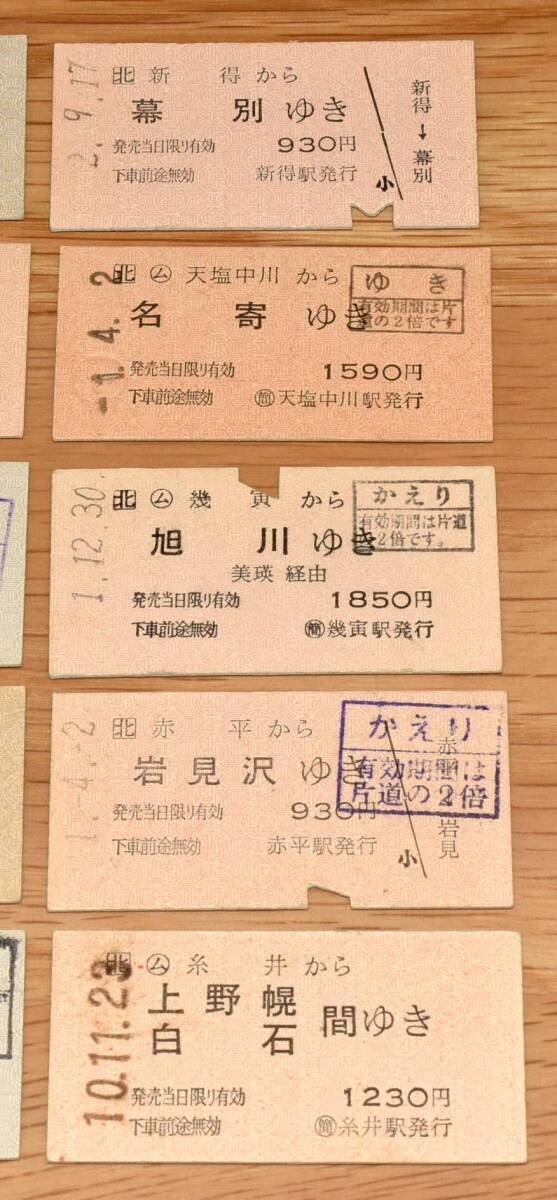 2.-9.17
北 新得から
幕別ゆき
発売当日限り有効 930円
下車前途無効 新得駅発行
小
新得→幕別
-1.4.2
北 ム 天塩中川から
名寄ゆき
ゆき
有効期間は片
道の2倍です
発売当日限り有効 1590円
下車前途無効 簡 天塩中川駅発行
1.12.30
北 ム 幾寅から
旭川ゆき
美瑛 経由
かえり
有効期間は片道
2倍です。
発売当日限り有効 1850円
下車前途無効 簡 幾寅駅発行
北 赤平から
岩見沢ゆき
かえり
有効期間は
片道の2倍
発売当日限り有効 930円
下車前途無効 赤平駅発行
小
10.11.23
北 ム 糸井から
上野幌
白石
間ゆき
発売当日限り有効 1230円
下車前途無効 簡 糸井駅発行